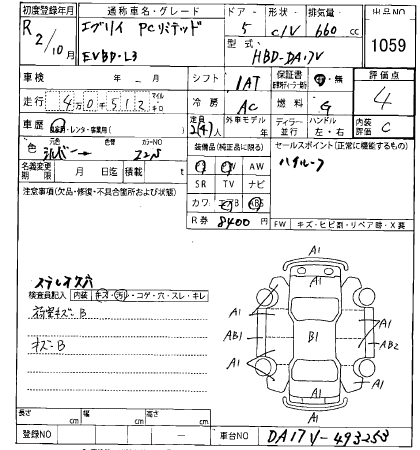 初度登録年月 通称車名・グレード ドア・形状 排気量 出品NO
R 2/10月 エブリイ PCリミテッド 5 C/V 660 cc 1059
EVBD-L3 型式 HBD-DA17V
車検 年 月 シフト 1AT 保証書 有・無 評価点
走行 4万0千512 マイル キロ 冷房 AC 燃料 G 4
車歴 自家用・レンタ・営業用( ) 定員 2(4)人 外車モデル ディーラー 並行 ハンドル 左・右 内装評価 C
色 元色 シルバー 色替 カラーNO Z2S 装備品(純正品に限る) セールスポイント(正常に機能するもの)
名義変更期限 月 日迄 積載 t PS PW AW ハイルーフ
注意事項(欠品・修復・不具合箇所および状態) SR TV ナビ
カワ エアB ABS
R券 8400円 FW キズ・ヒビ割・リペア跡・X要
ステレオ穴
検査員記入 内装 キズ・汚・コゲ・穴・スレ・キレ
荷室キズB
キズB
A1
A1 A1
A1
AB1 B1 A1 AB2
A1
A1
A1
長さ cm 幅 cm 高さ cm
登録NO 車台NO DA17V-493253